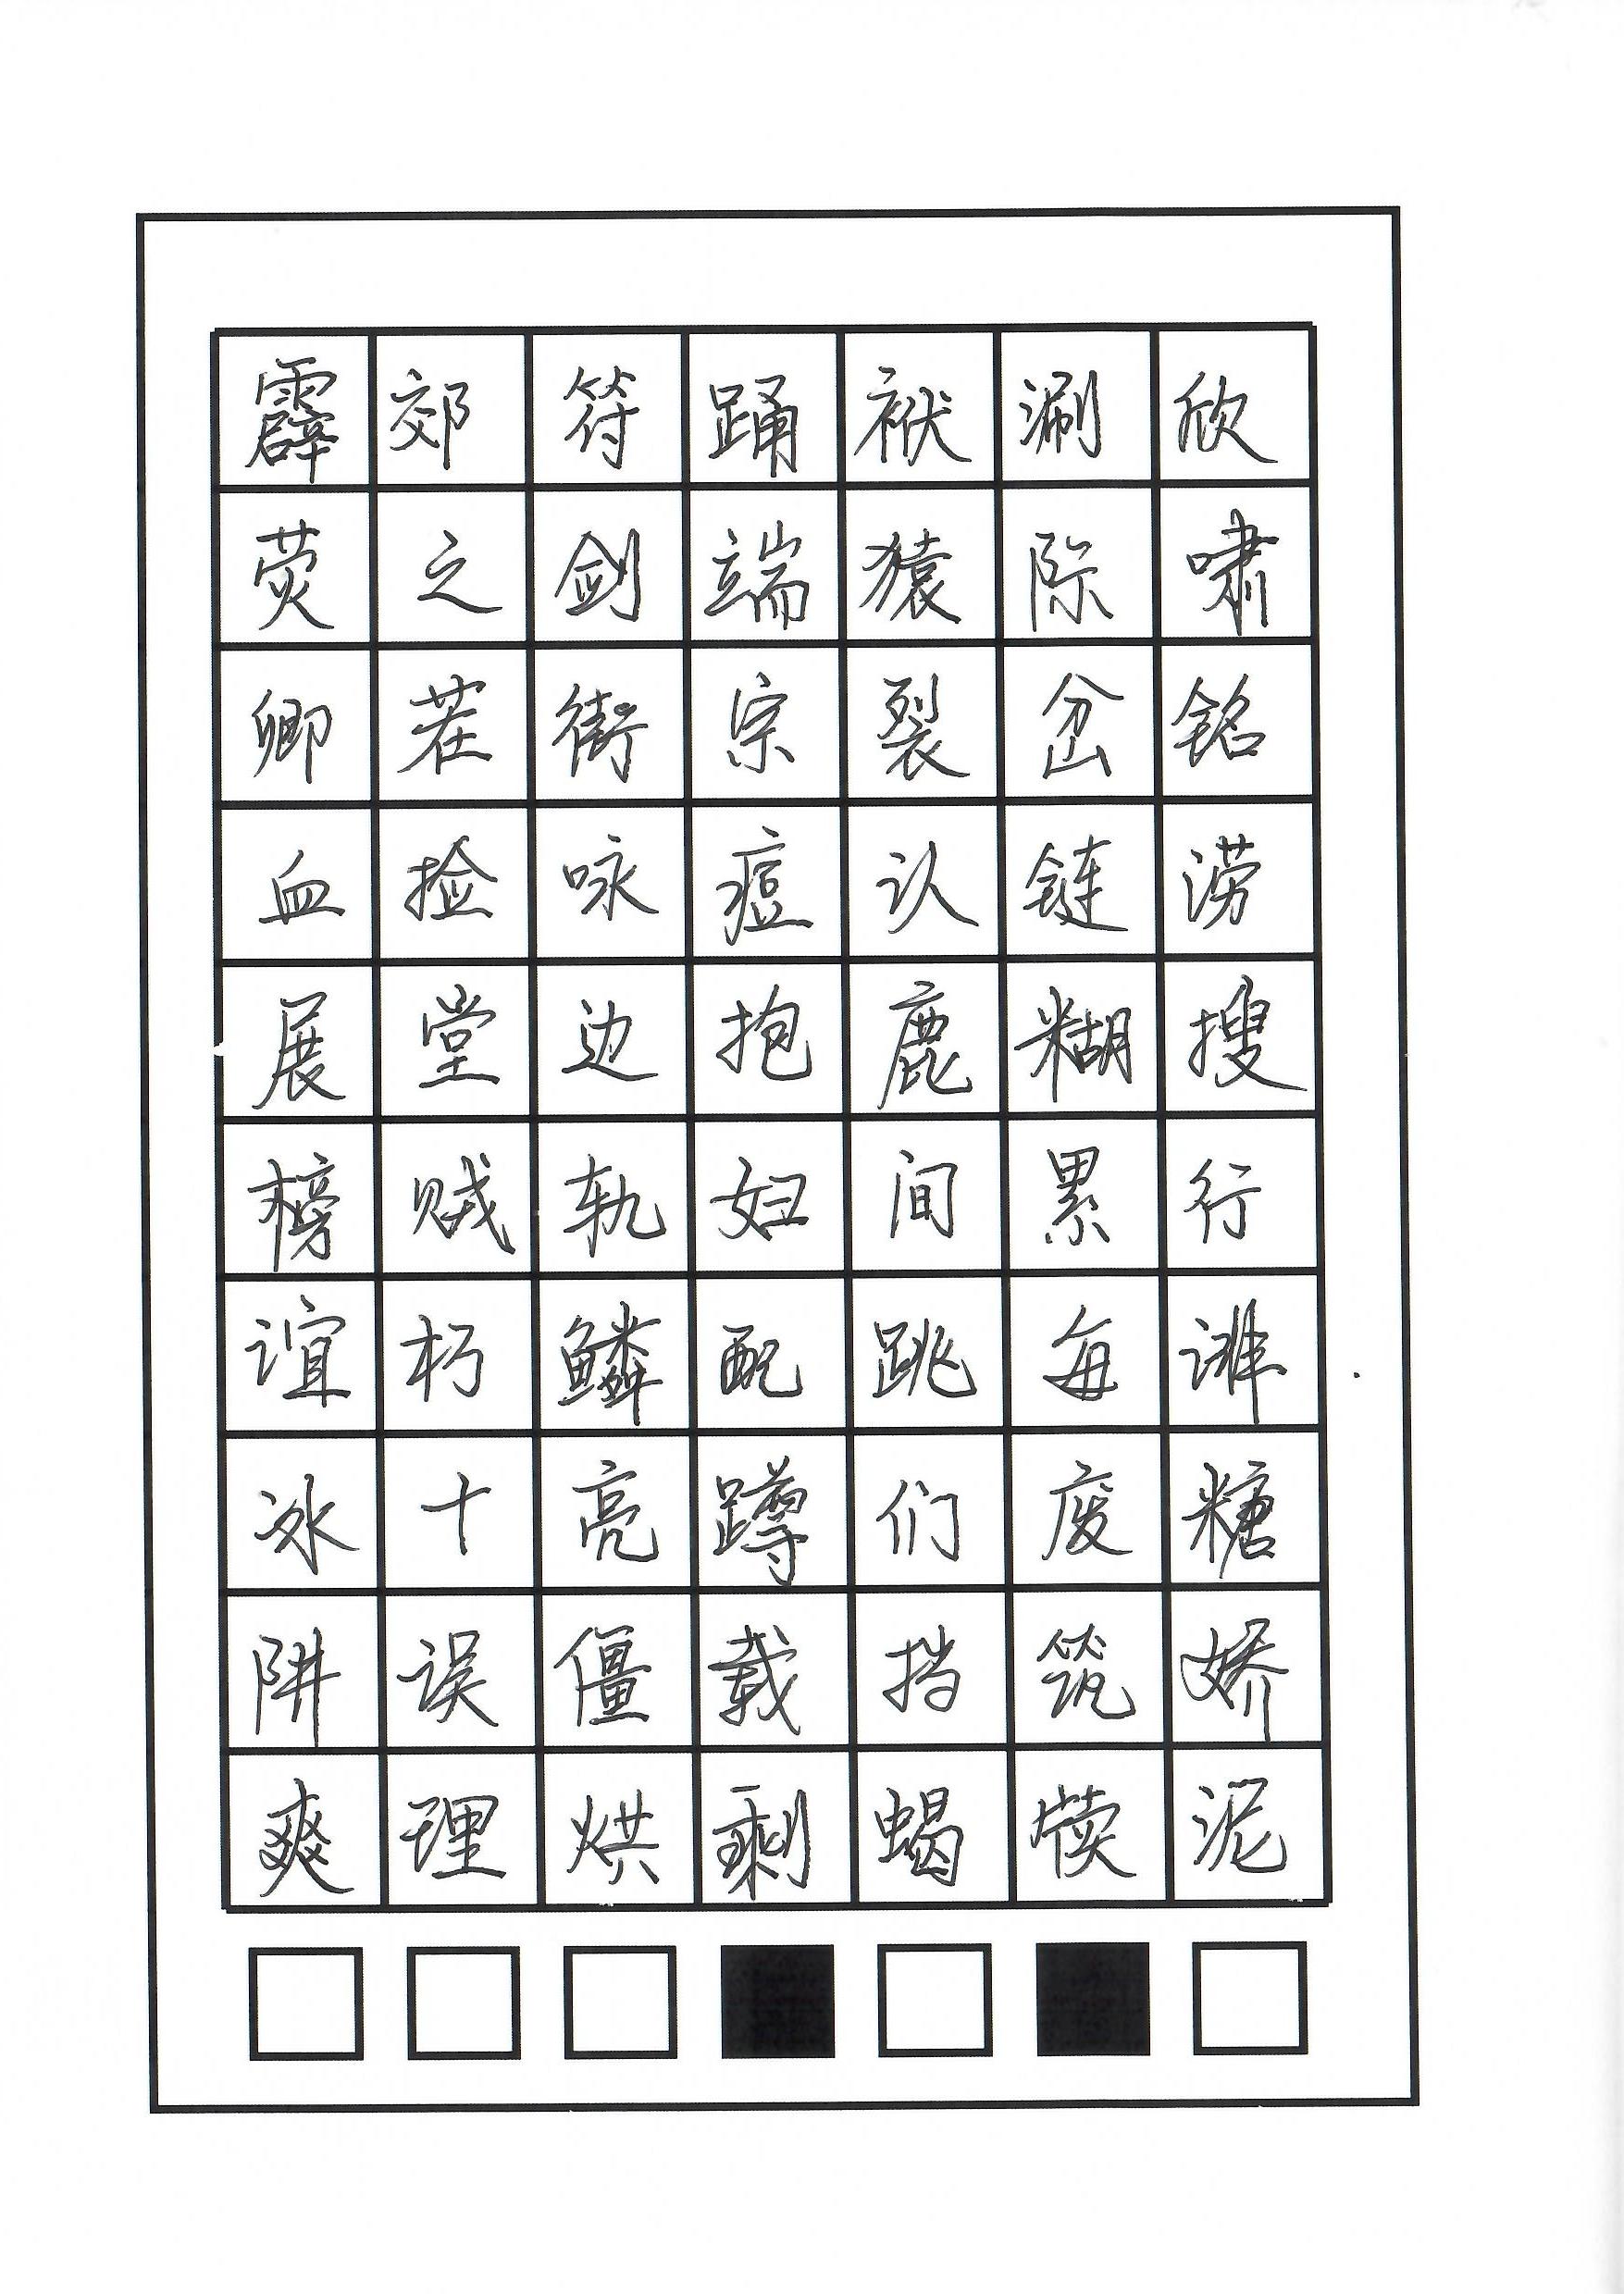 霹郊符踊袱涮欣
荧之剑端猿际啸
卿茬衔宗裂岔铭
血捡咏痘认链涝
展堂边抱鹿糊搜
榜贼轨妇间累行
谊朽鳞配跳每诽
冰十亮蹲们废糖
阱误僵载挡筑娇
爽理烘剩蝎犊泥